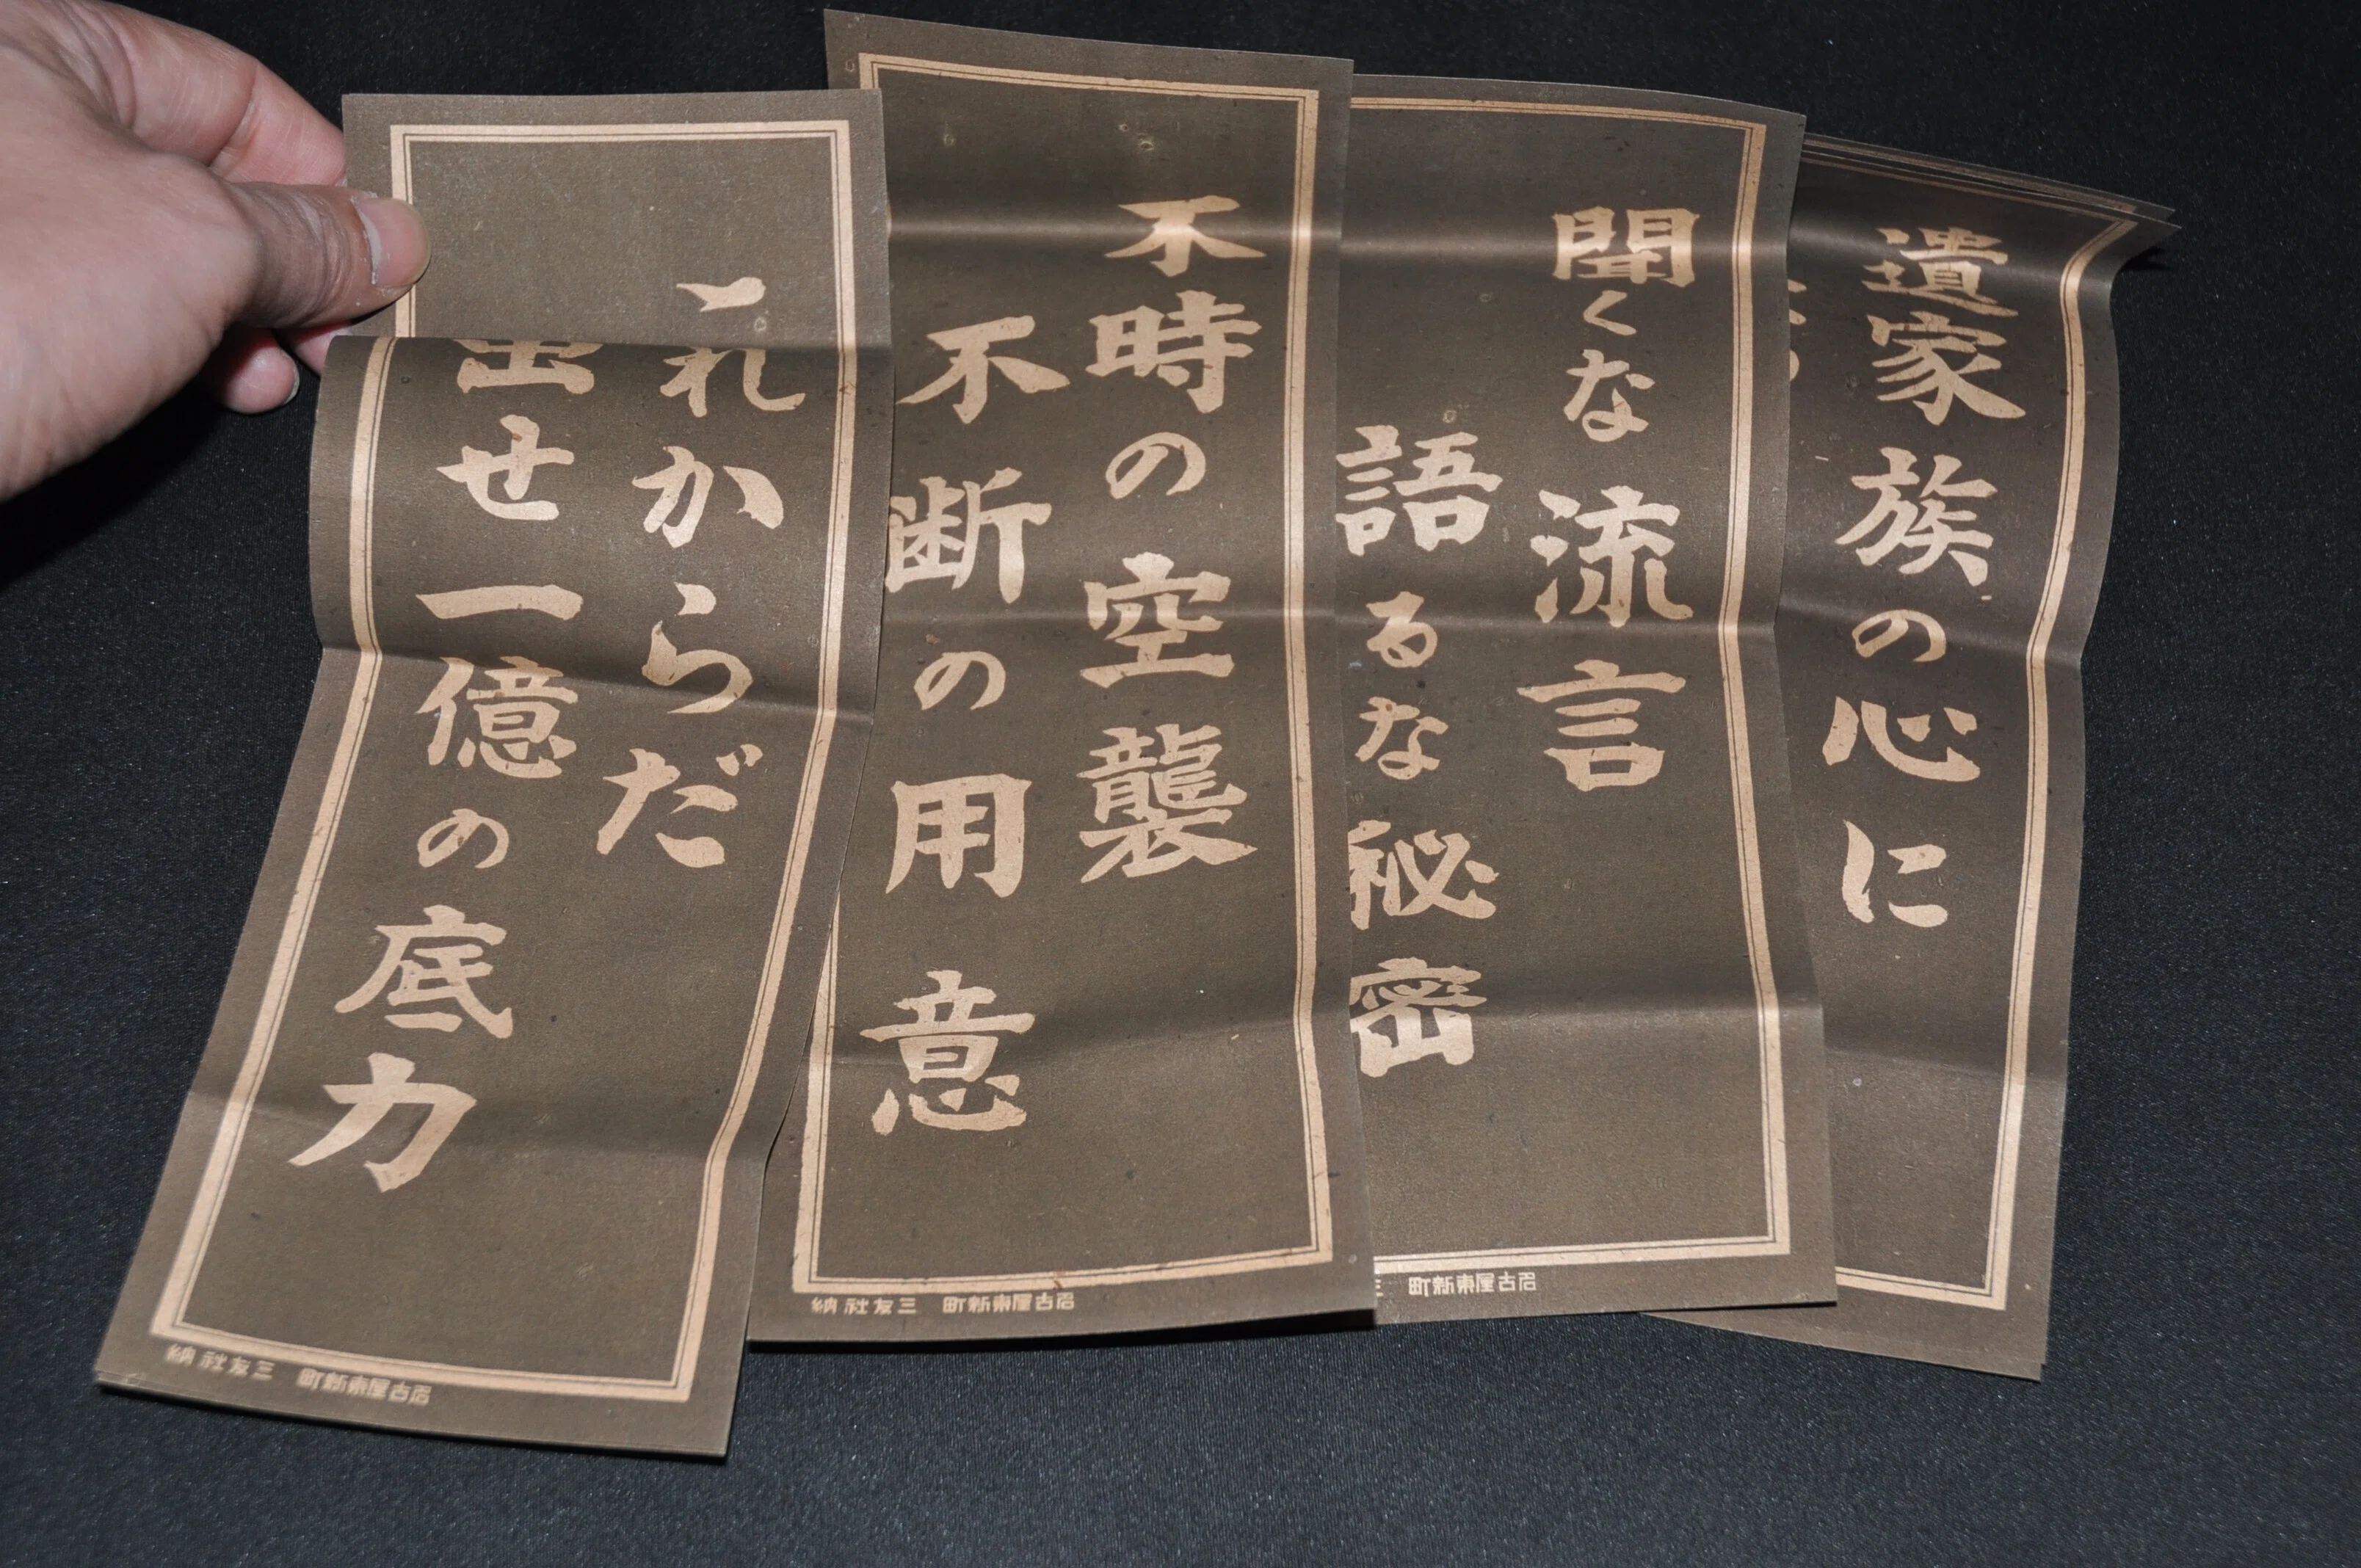 遺家族の心に
聞くな流言
語るな秘密
名古屋東新町 三
不時の空襲
不断の用意
名古屋東新町 三友社納
これからだ
出せ一億の底力
名古屋東新町 三友社納